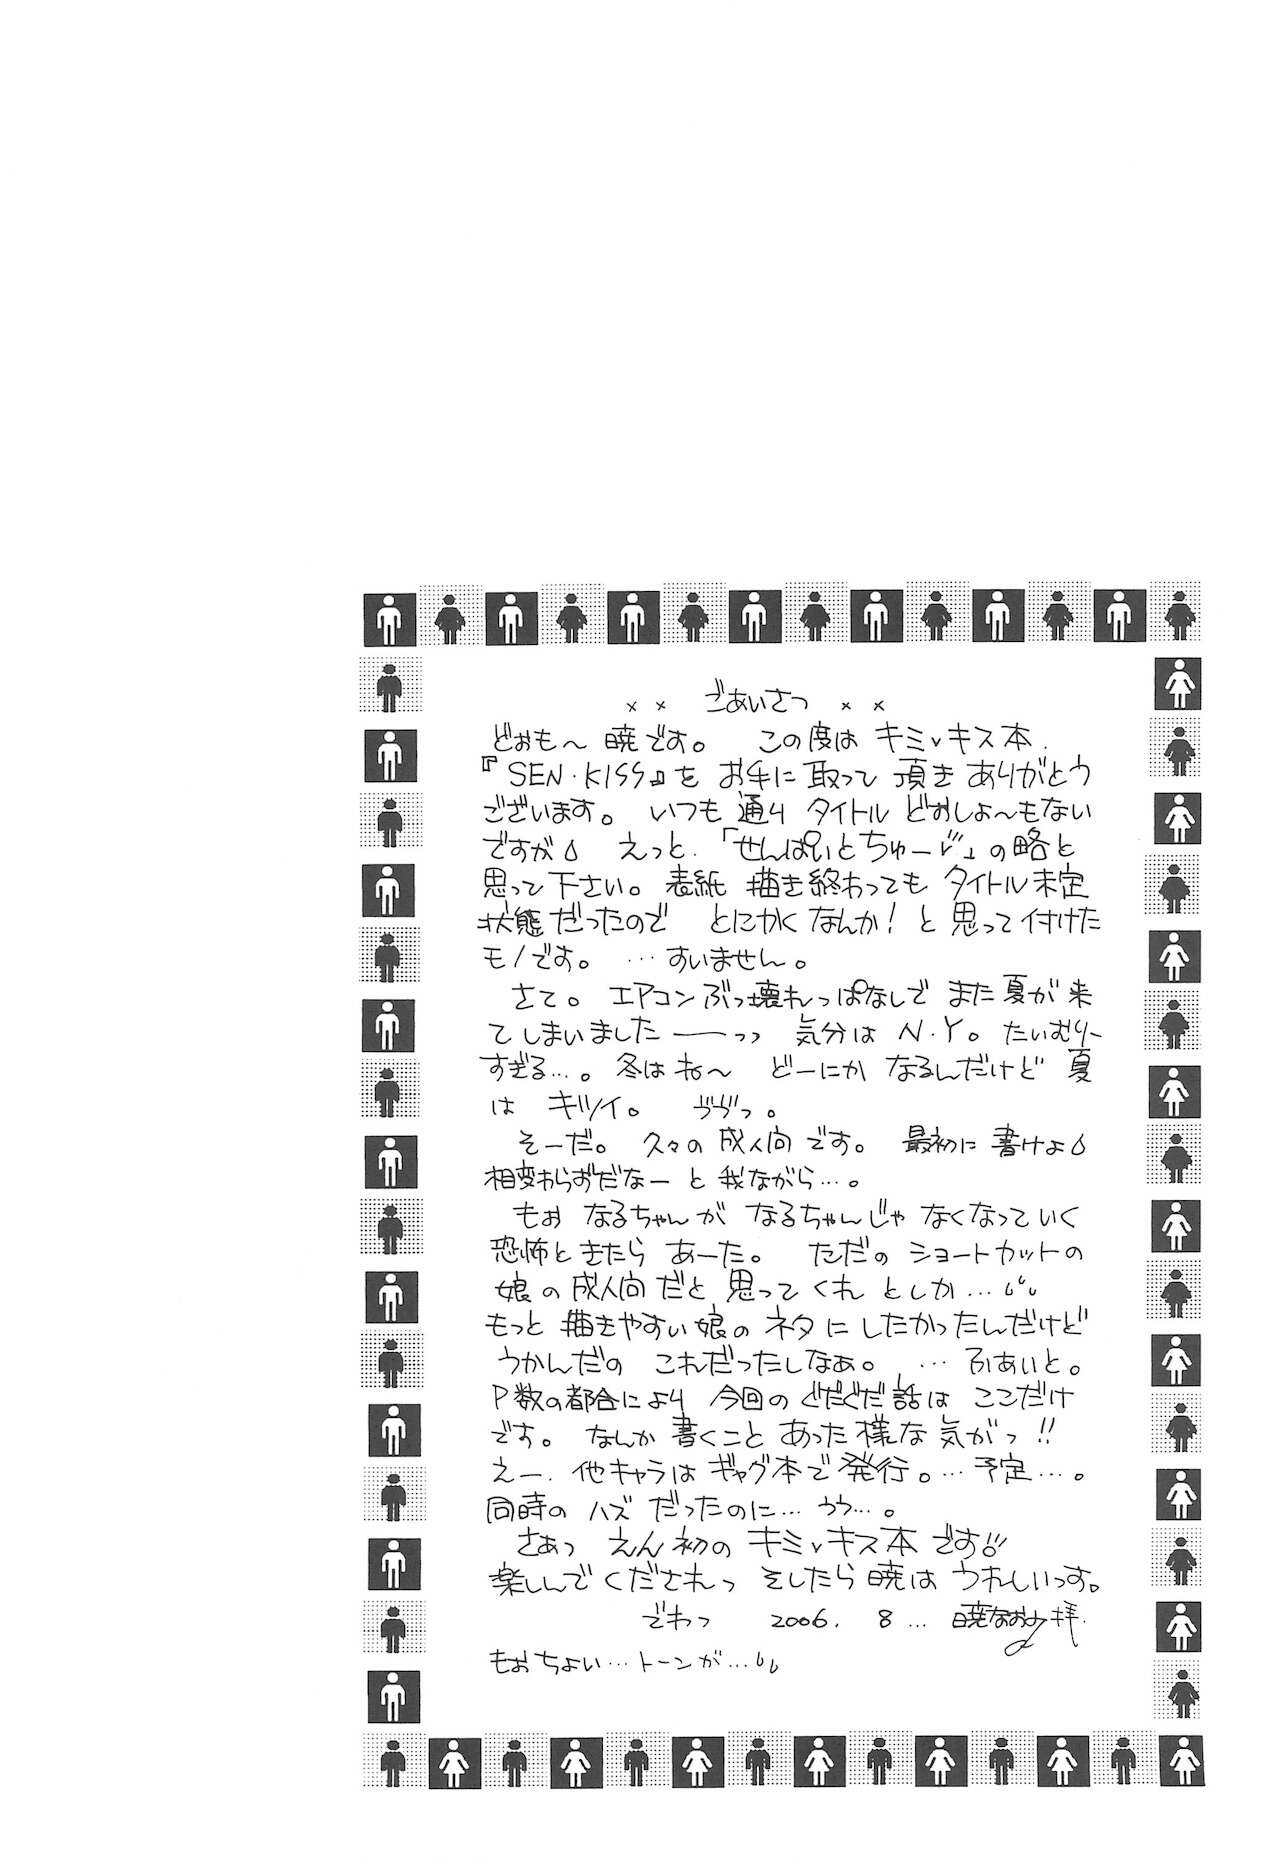 ×× ごあいさつ ××
どぉも～ 暁です。 この度は キミvキス本.
『SEN・KISS』を お手に取って頂き ありがとう
ございます。 いつも通り タイトル どおしょ～もない
ですが えっと.「せんぱいとちゅーv」の略と
思って下さい。 表紙 描き終わっても タイトル未定
状態だったので とにかくなんか! と思って付けた
モノです。 …すいません。
さて。 エアコンぶっ壊れっぱなしで また夏が来
てしまいました――っっ 気分は N.Y。 たいむりー
すぎる…。 冬はね～ どーにか なるんだけど 夏
は キツイ。 ゔゔっ。
そーだ。 久々の成人向です。 最初に書けよ
相変わらずだなー と我ながら…。
もぉ なるちゃんが なるちゃんじゃ なくなっていく
恐怖ときたら あーた。 ただの ショートカットの
娘の成人向だと 思ってくれ としか…
もっと 描きやすい娘の ネタに したかったんだけど
うかんだの これだったしなぁ。 …ふぁいと。
P数の都合により 今回の ぐだぐだ話は ここだけ
です。 なんか書くこと あった様な気がっ!!
えー. 他キャラは ギャグ本で発行。…予定…。
同時の ハズ だったのに… うう…。
さぁっ えん初の キミvキス本 です!!
楽しんでくだされっ そしたら 暁は うれしいっす。
でわっ 2006. 8… 暁なおみ 拝.
もぉちょい…トーンが…